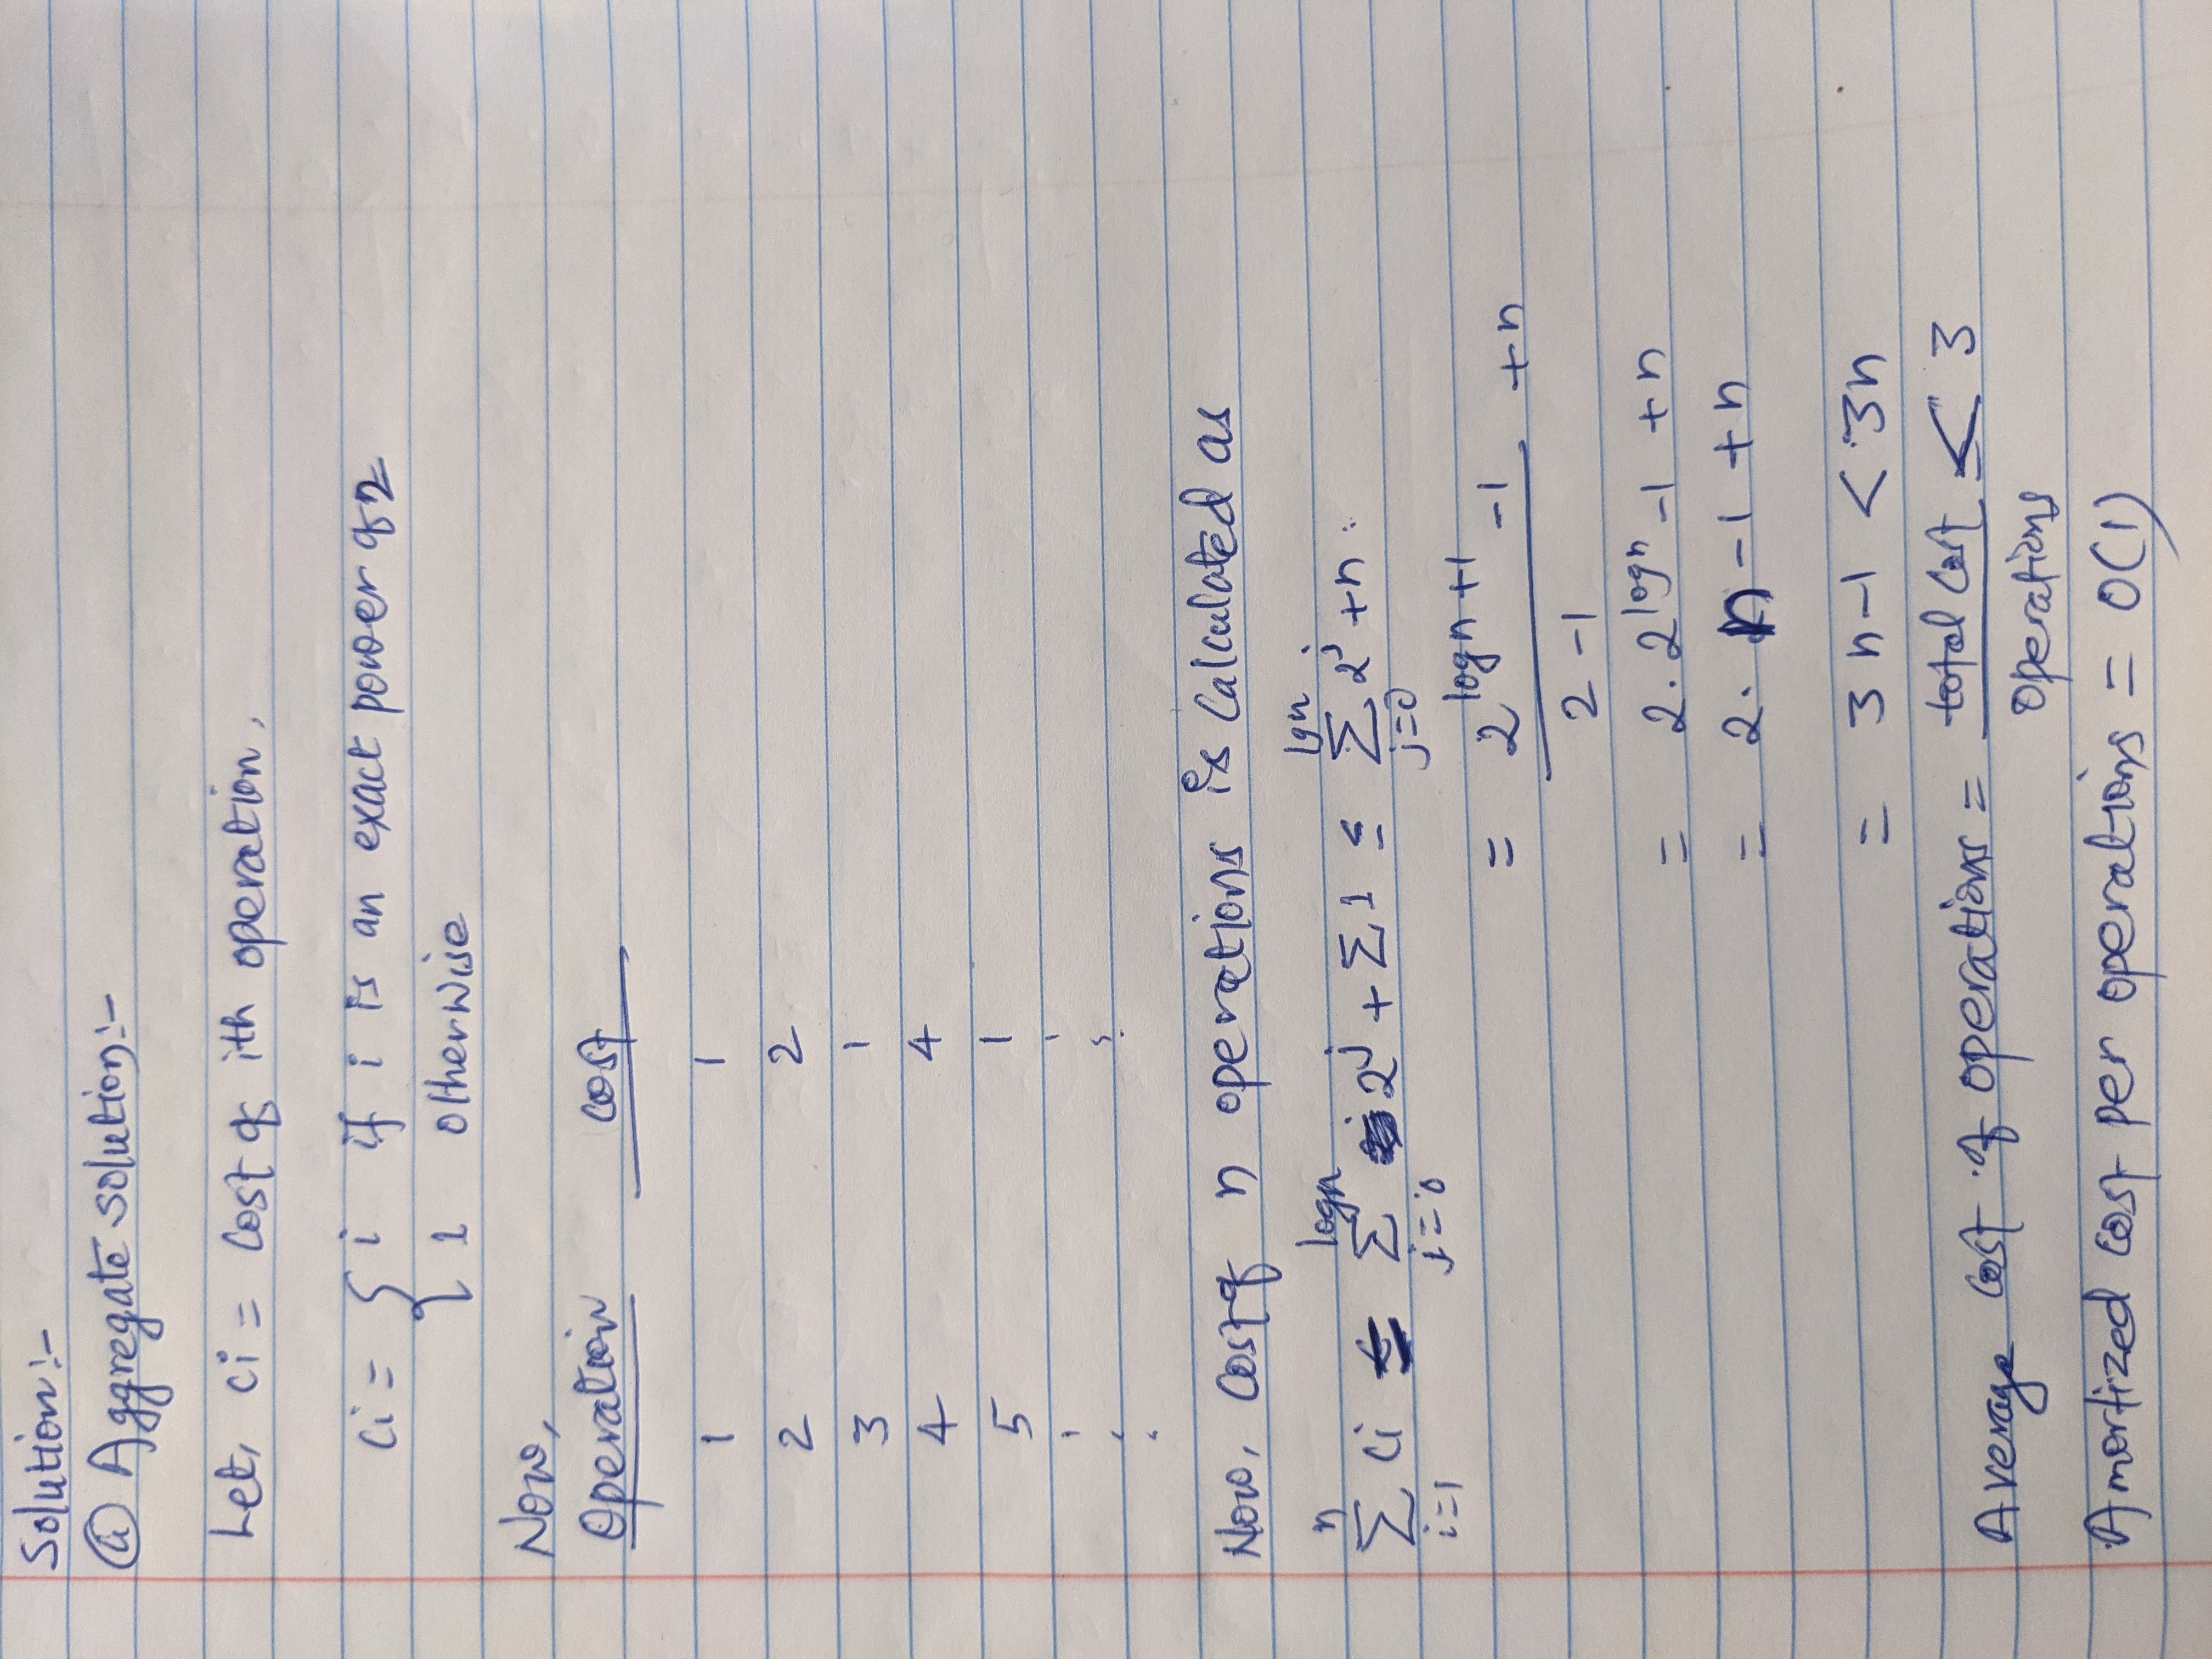 Solution:-
ⓐ Aggregate solution:-
Let, ci = Cost of ith operation,
ci = { i if i is an exact power of 2
1 otherwise
Now,
Operation cost
1 1
2 2
3 1
4 4
5 1
⋮ ⋮
Now, Cost of n operations is Calculated as
n ∑ i=1 ci ≤ logn ∑ j=0 2^j + ∑1 ≤ lgn ∑ j=0 2^j + n.
= (2^(logn+1) -1)/(2-1) + n
= 2. 2^logn -1 + n
= 2. n -1 + n
= 3n-1 < 3n
Average Cost of operations = total Cost / operations ≤ 3
Amortized cost per operations = O(1)